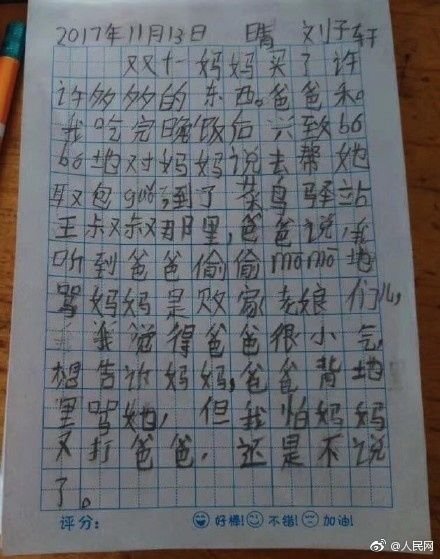 2017年11月13日 晴 刘子轩
双十一妈妈买了许
许多多的东西。爸爸和
我吃完晚饭后兴致bó
bó地对妈妈说去帮她
取包guǒ,到了菜鸟驿站
王叔叔那里,爸爸说,我
听到爸爸偷偷mōmō地
骂妈妈是败家老娘们儿,
我说得爸爸很小气,
想告诉妈妈,爸爸背地
里骂她,但我怕妈妈
又打爸爸,还是不说
了。
评分: 好棒! 不错! 加油!
@人民网